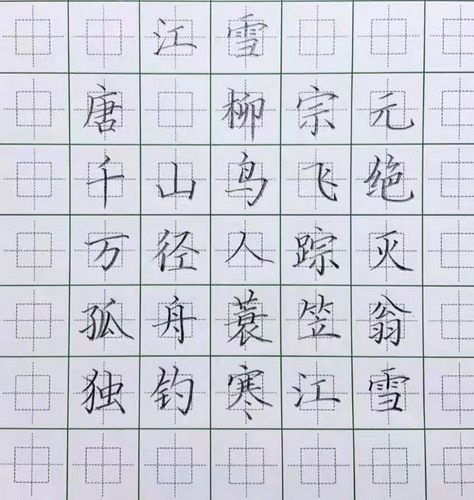 江雪
唐 柳宗元
千山鸟飞绝
万径人踪灭
孤舟蓑笠翁
独钓寒江雪